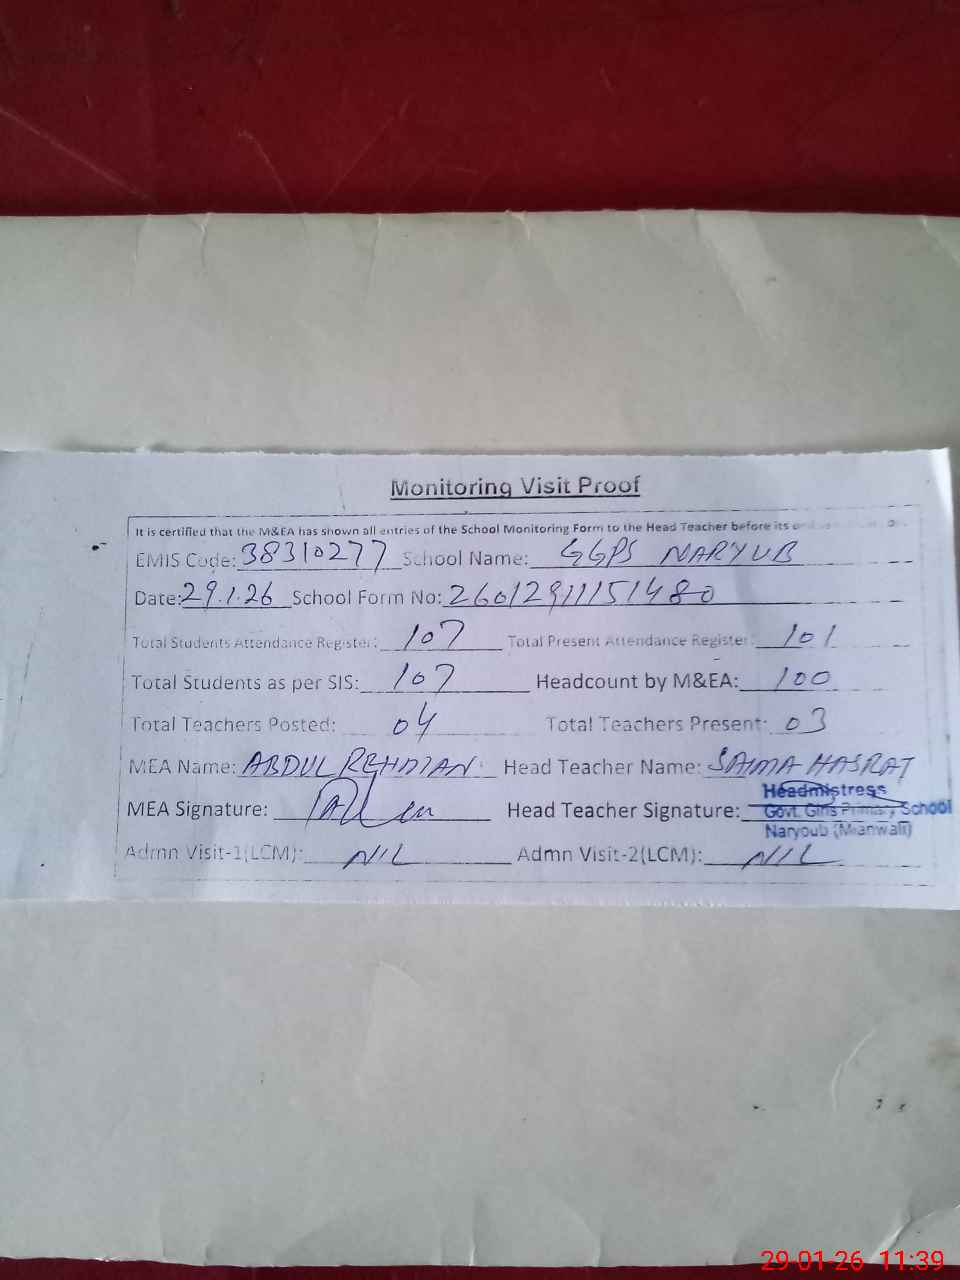 Monitoring Visit Proof
It is certified that the M&EA has shown all entries of the School Monitoring Form to the Head Teacher before its
EMIS Code: 38310277 School Name: GGPS NARYUB
Date: 29.1.26 School Form No: 26012911151480
Total Students Attendance Register: 107 Total Present Attendance Register: 101
Total Students as per SIS: 107 Headcount by M&EA: 100
Total Teachers Posted: 04 Total Teachers Present: 03
MEA Name: ABDUL REHMAN Head Teacher Name: SAIMA HASRAT
MEA Signature: Head Teacher Signature:
Headmistress
Govt. Girls Primary School
Naryoub (Mianwali)
Admn Visit-1(LCM): NIL Admn Visit-2(LCM): NIL
29-01-26 11:39